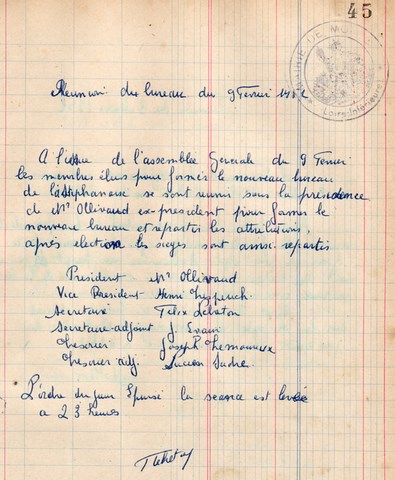 45
MAIRIE DE
Loire-Inférieure
Reunion du bureau du 9 Fevrier
A l'issue de l'assemblee Generale du 9 Fevrier
les membres élus pour former le nouveau bureau
de la Stéphanoise se sont reunir sous la presidence
de Mr Ollivaud ex-president pour former le
nouveau bureau et repartir les attributions
après election les sieges sont ainsi repartis
President Mr Ollivaud
Vice President Henri
Secretaire Felix Lebeton
Secretaire-adjoint J. Evain
Thesorier Joseph
Thesorier adj. Lucien
L'ordre du jour Epuisé la seance est levée
a 23 heures